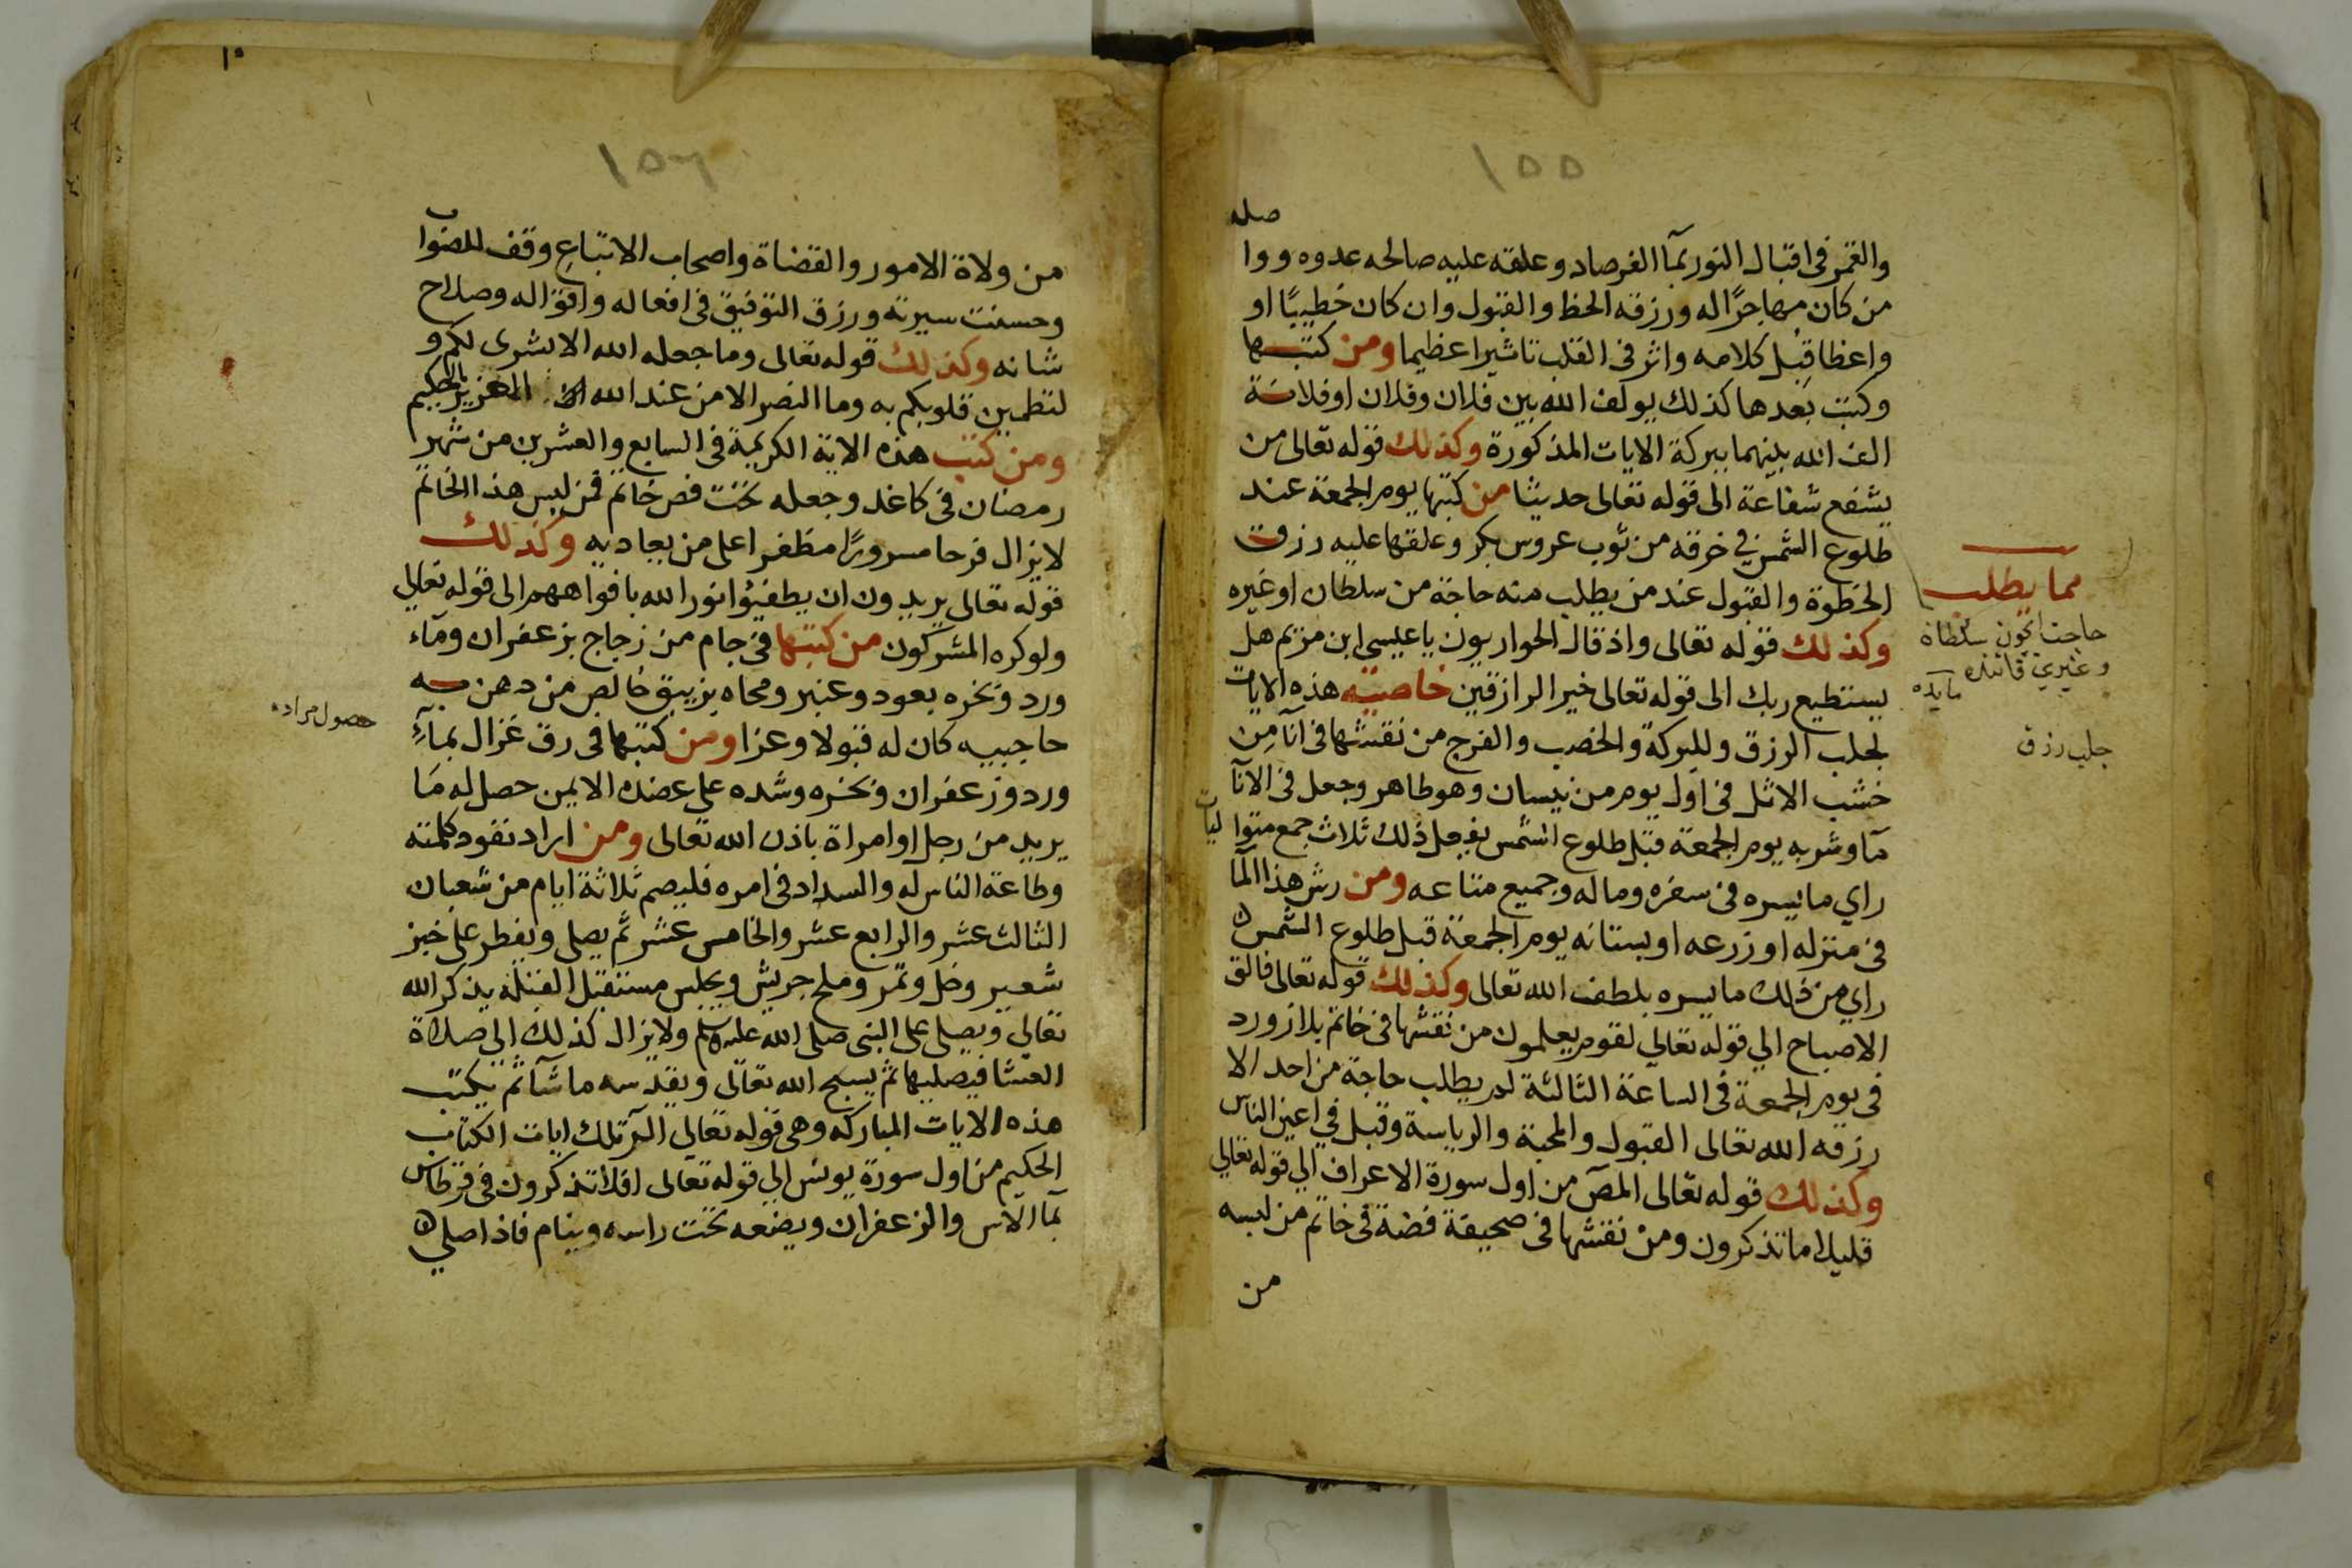 ١٥٥
صله
والقمر فى اقبال النور بمآ الفرصاد وعلقه عليه صالحه عدوه ووا
من كان مهاجرًا له ورزقه الحظ والقبول وان كان خطيبًا او
واعظا قبل كلامه واثر فى القلب تاثيرا عظيما ومن كتبها
وكتب بعدها كذلك يولف الله بين فلان وفلان او فلانة
الف الله بينهما ببركة الايات المذكورة وكذلك قوله تعالى من
يشفع شفاعة الى قوله تعالى حديثا من كتبها يوم الجمعة عند
طلوع الشمس في خرقه من ثوب عروس بكر وعلقها عليه رزق
الحظوة والقبول عند من يطلب منه حاجة من سلطان او غيره
وكذلك قوله تعالى واذ قال الحواريون يا عيسى ابن مريم هل
يستطيع ربك الى قوله تعالى خير الرازقين خاصيته هذه الايات
لجلب الرزق وللبركة والخصب والفرج من نقشها فى انآ من
خشب الاثل فى اول يوم من نيسان وهو طاهر وجعل فى الانآ
مآ وشربه يوم الجمعة قبل طلوع الشمس يفعل ذلك ثلاث جمع متوا ليات
راي ما يسره فى سفره وماله وجميع متاعه ومن رش هذا المآ
فى منزله او زرعه او بستانه يوم الجمعة قبل طلوع الشمس
راي من ذلك ما يسره بلطف الله تعالى وكذلك قوله تعالى فالق
الاصباح الي قوله تعالي لقوم يعلمون من نقشها فى خاتم بلازورد
فى يوم الجمعة فى الساعة الثالثة لم يطلب حاجة من احد الا
رزقه الله تعالى القبول والمحبة والرياسة وقبل في اعين الناس
وكذلك قوله تعالى المص من اول سورة الاعراف الي قوله تعالي
قليلا ما تذكرون ومن نقشها فى صحيفة فضة فى خاتم من لبسه
من
مما يطلب
حاجت ايچون سلطان
وغيري قاتنده
مايده
جلب رزق
١٥٦
من ولاة الامور والقضاة واصحاب الاتباع وقف للصواب
وحسنت سيرته ورزق التوفيق فى افعاله واقواله وصلاح
شانه وكذلك قوله تعالى وما جعله الله الا بشرى لكم و
لتطمين قلوبكم به وما النصر الا من عند الله العزيز الحكيم
ومن كتب هذه الاية الكريمة فى السابع والعشرين من شهر
رمضان فى كاغد وجعله تحت فص خاتم فمن لبس هذا الخاتم
لا يزال فرحا مسرورًا مظفرا على من يعاديه وكذلك
قوله تعالى يريدون ان يطفيئوا نور الله بافواههم الى قوله تعالي
ولو كره المشركون من كتبها فى جام من زجاج بزعفران ومآء
ورد وبخره بعود وعنبر ومحاه بزيبق خالص من دهن به
حاجبيه كان له قبولا وعزا ومن كتبها فى رق غزال بمآءِ
ورد وزعفران وبخره وشده على عضده الايمن حصل له ما
يريد من رجل او امراة باذن الله تعالى ومن اراد نفود كلمته
وطاعة الناس له والسداد فى امره فليصم ثلاثة ايام من شعبان
الثالث عشر والرابع عشر والخامس عشر ثم يصلى ويفطر على خبز
شعير وخل وتمر وملح جريش ويجلس مستقبل القبلة يذكر الله
تعالي ويصلى على النبى صلى الله عليه وسلم ولا يزال كذلك الى صلاة
العشا فيصليها ثم يسبح الله تعالى ويقدسه ما شآ ثم يكتب
هذه الايات المباركه وهى قوله تعالي الر تلك ايات الكتاب
الحكيم من اول سورة يونس الي قوله تعالى افلا تذكرون فى قرطاس
بمآ الاس والزعفران ويضعه تحت راسه وينام فاذا صلي
حصول مراد